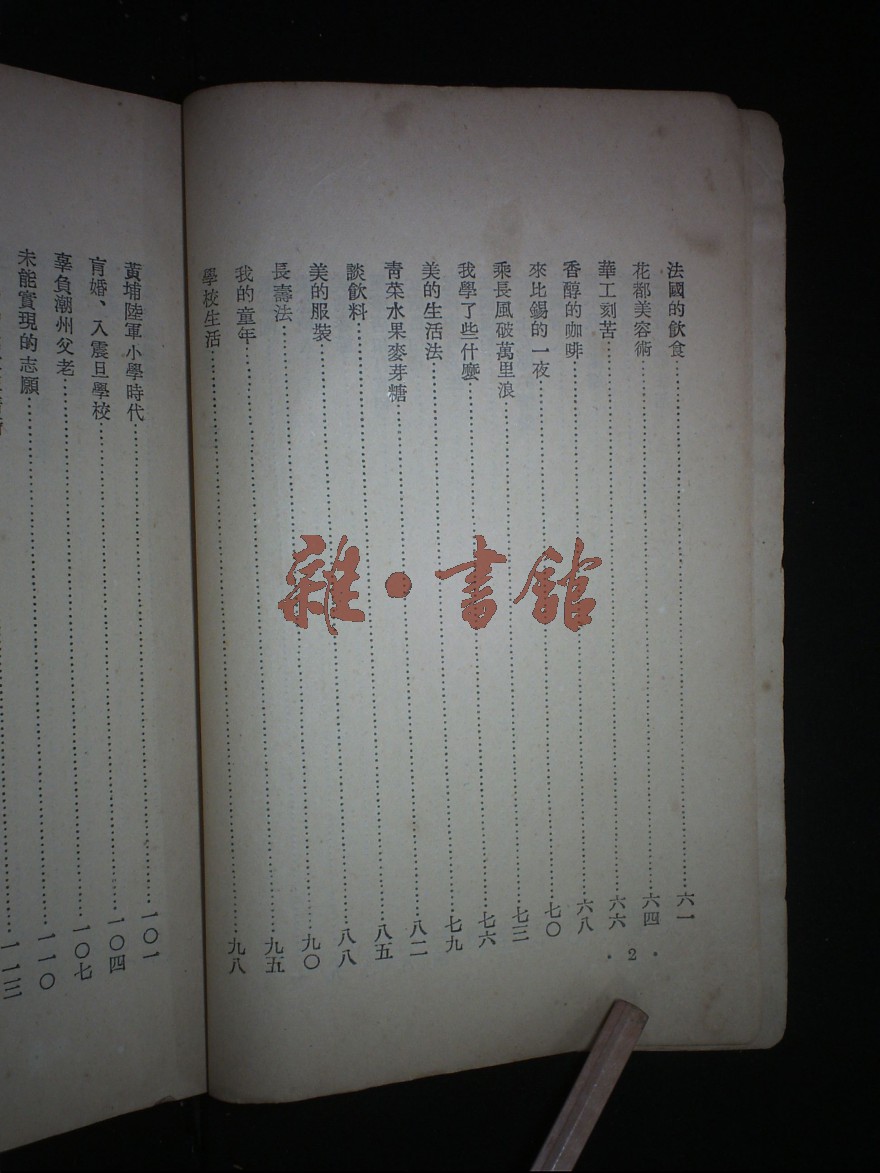 法國的飲食……六一
花都美容術……六四
華工刻苦……六六
香醇的咖啡……六八
來比錫的一夜……七〇
乘長風破萬里浪……七三
我學了些什麼……七六
美的生活法……七九
青菜水果麥芽糖……八二
談飲料……八五
美的服裝……八八
長壽法……九〇
我的童年……九五
學校生活……九八
·2·
黃埔陸軍小學時代……一〇一
肓婚、入震旦學校……一〇四
辜負潮州父老……一〇七
未能實現的志願……一一〇
一一三
雜·書館